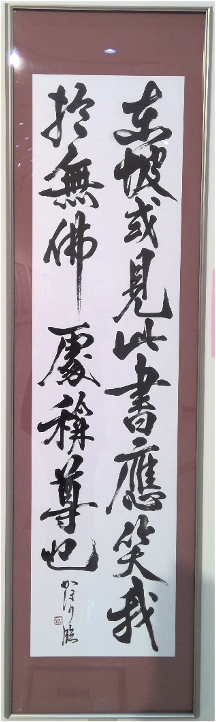 东坡或見此書應笑我
於無佛處稱尊也
かほり臨